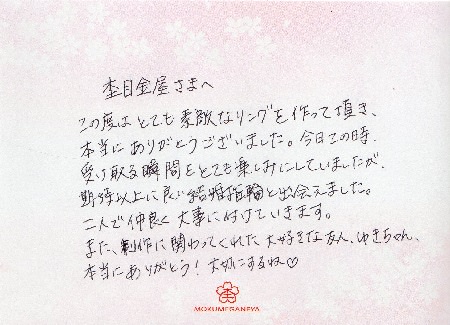 杢目金屋さまへ
この度はとても素敵なリングを作って頂き、
本当にありがとうございました。今日この時、
受け取る瞬間をとても楽しみにしていましたが、
期待以上に良い結婚指輪と出会えました。
二人で仲良く大事に付けていきます。
また、制作に関わってくれた大好きな友人、ゆきちゃん、
本当にありがとう！大切にするね♡
MOKUMEGANEYA